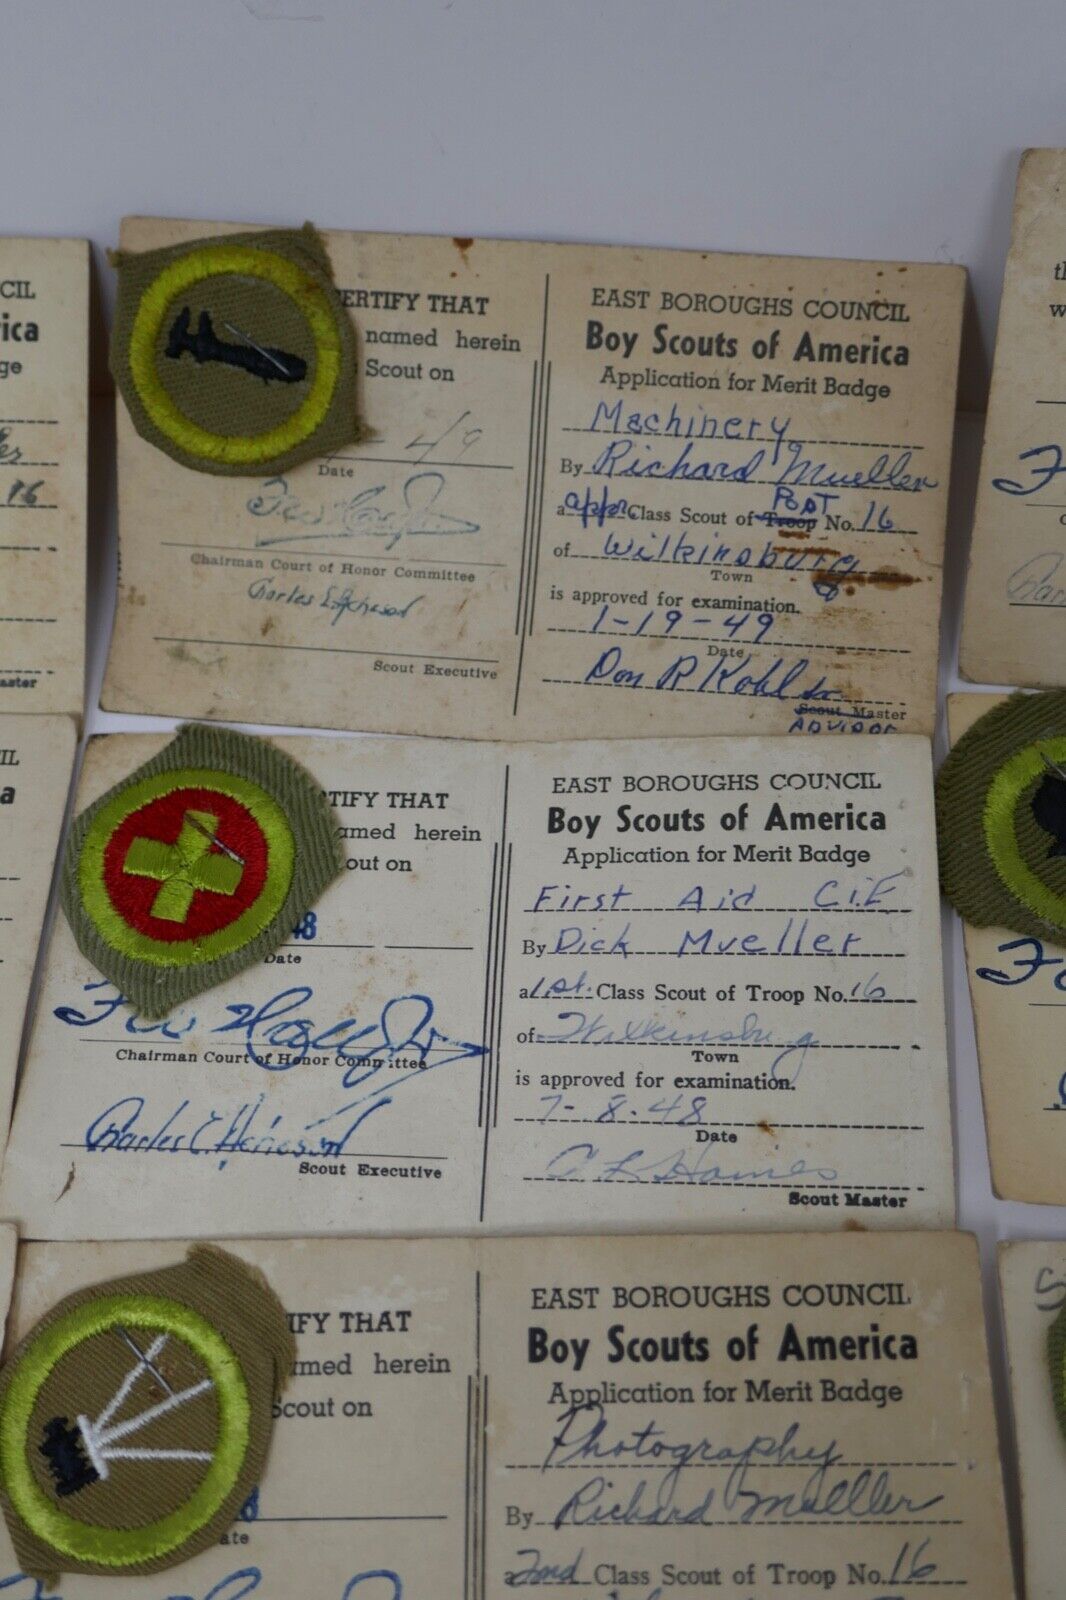 CIL
ica
ge
16
aster
ERTIFY THAT
named herein
Scout on
49
Date
Chairman Court of Honor Committee
Scout Executive
EAST BOROUGHS COUNCIL
Boy Scouts of America
Application for Merit Badge
Machinery
By Richard Mueller
a appr. Class Scout of Troop POST No. 16
of Wilkinsburg
Town
is approved for examination.
1-19-49
Date
Don R Kohl Jr.
Scout Master
ADVISOR
th
w
IL
a
TIFY THAT
amed herein
out on
48
Date
Chairman Court of Honor Committee
Scout Executive
EAST BOROUGHS COUNCIL
Boy Scouts of America
Application for Merit Badge
First Aid
By Dick Mueller
a 1st. Class Scout of Troop No. 16
of Wilkinsburg
Town
is approved for examination.
7-8-48
Date
Haines
Scout Master
IFY THAT
amed herein
Scout on
8
ate
EAST BOROUGHS COUNCIL
Boy Scouts of America
Application for Merit Badge
Photography
By Richard Mueller
a 2nd Class Scout of Troop No. 16